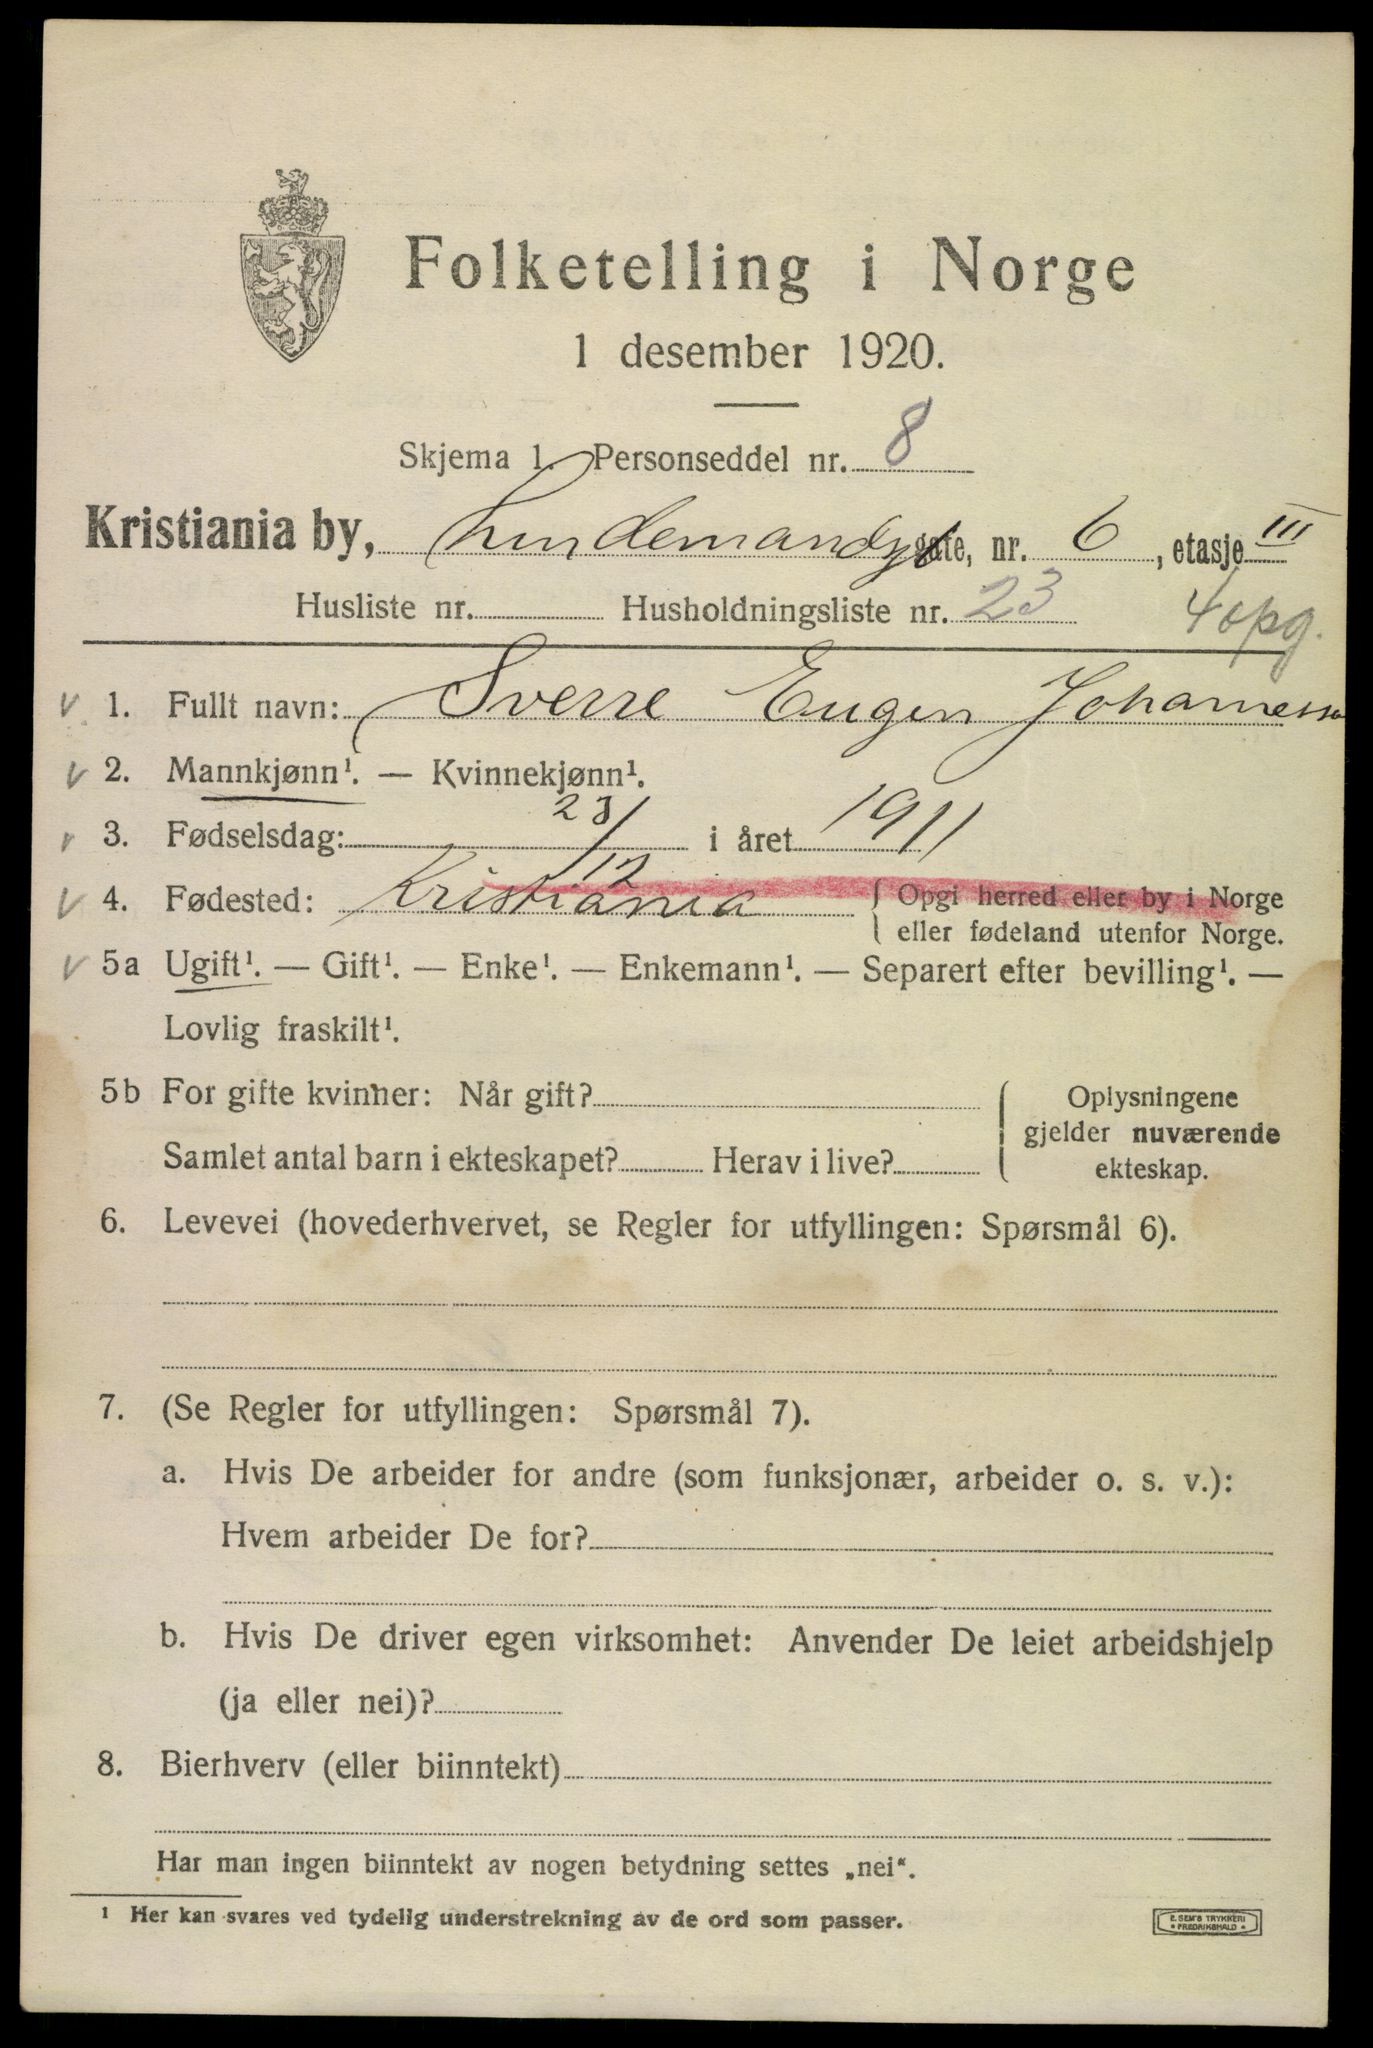 Folketelling i Norge
1 desember 1920.
Skjema 1. Personseddel nr. 8
Kristiania by, gate, nr. 6, etasje III
Husliste nr. Husholdningsliste nr. 23 4 opg.
1. Fullt navn: Sverre Eugen Johannessen
2. Mannkjønn¹. — Kvinnekjønn¹.
3. Fødselsdag: 23/12 i året 1911
4. Fødested: Kristiania { Opgi herred eller by i Norge
eller fødeland utenfor Norge.
5a Ugift¹. — Gift¹. — Enke¹. — Enkemann¹. — Separert efter bevilling¹. —
Lovlig fraskilt¹.
5b For gifte kvinner: Når gift? Oplysningene
gjelder nuværende
Samlet antal barn i ekteskapet? Herav i live? ekteskap.
6. Levevei (hovederhvervet, se Regler for utfyllingen: Spørsmål 6).
7. (Se Regler for utfyllingen: Spørsmål 7).
a. Hvis De arbeider for andre (som funksjonær, arbeider o. s. v.):
Hvem arbeider De for?
b. Hvis De driver egen virksomhet: Anvender De leiet arbeidshjelp
(ja eller nei)?
8. Bierhverv (eller biinntekt)
Har man ingen biinntekt av nogen betydning settes „nei“.
¹ Her kan svares ved tydelig understrekning av de ord som passer.
E. SEM'S TRYKKERI
* FREDRIKSHALD *